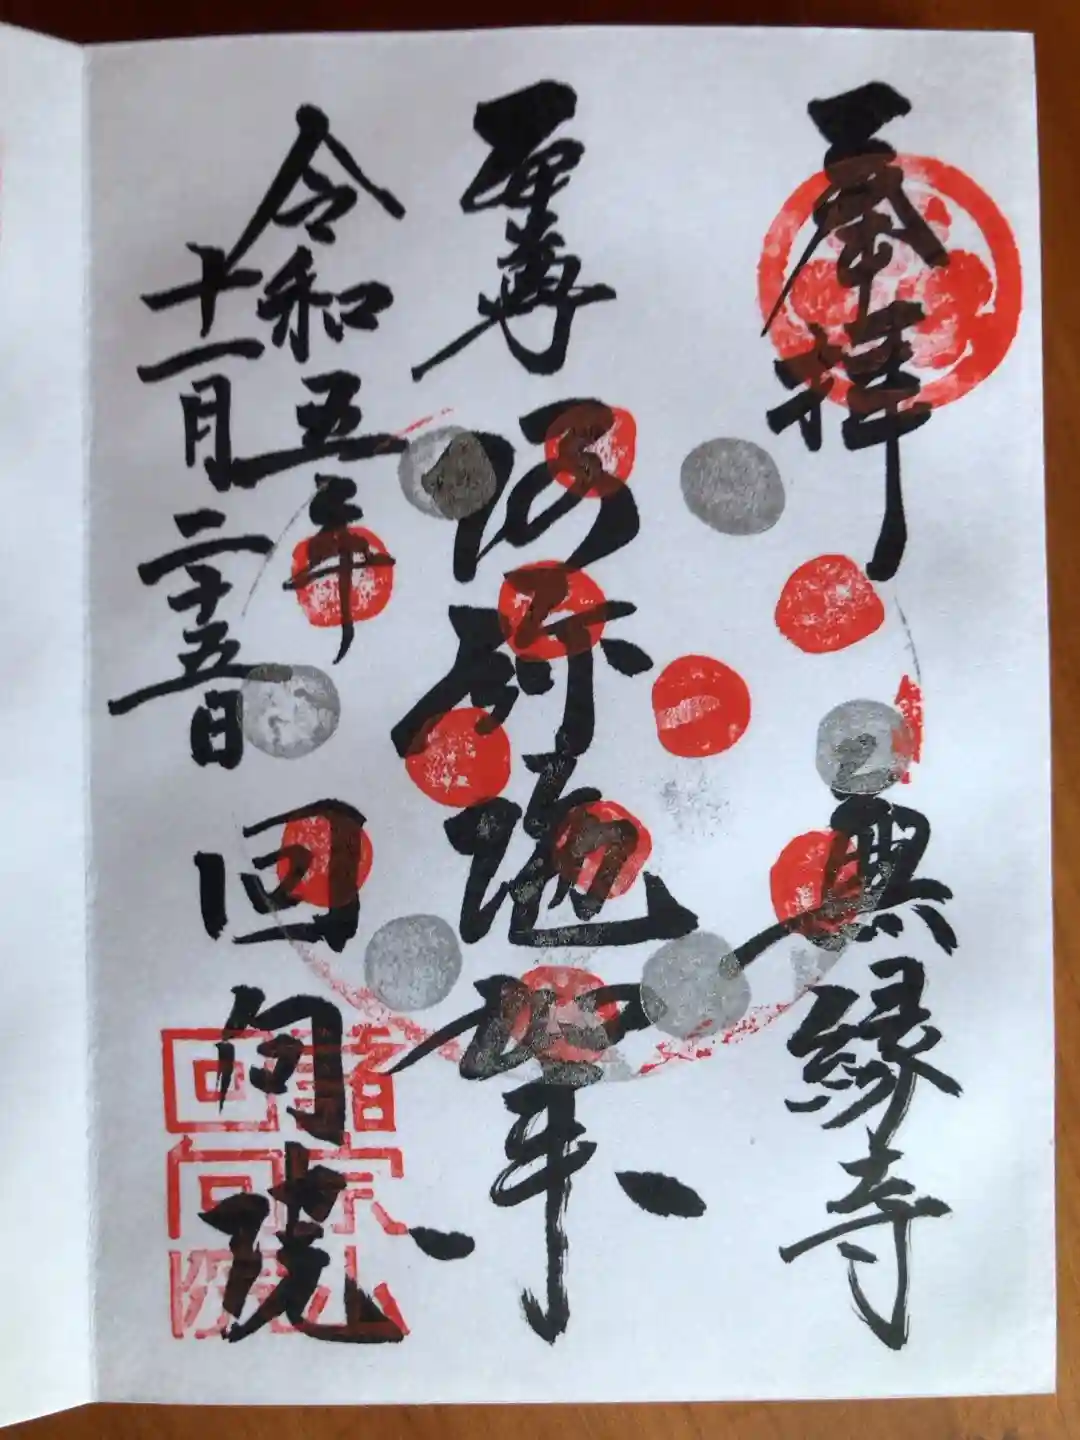 奉拝
無縁寺
尊 阿弥陀如来
令和五年
十一月二十五日
回向院
諸宗山
回向院